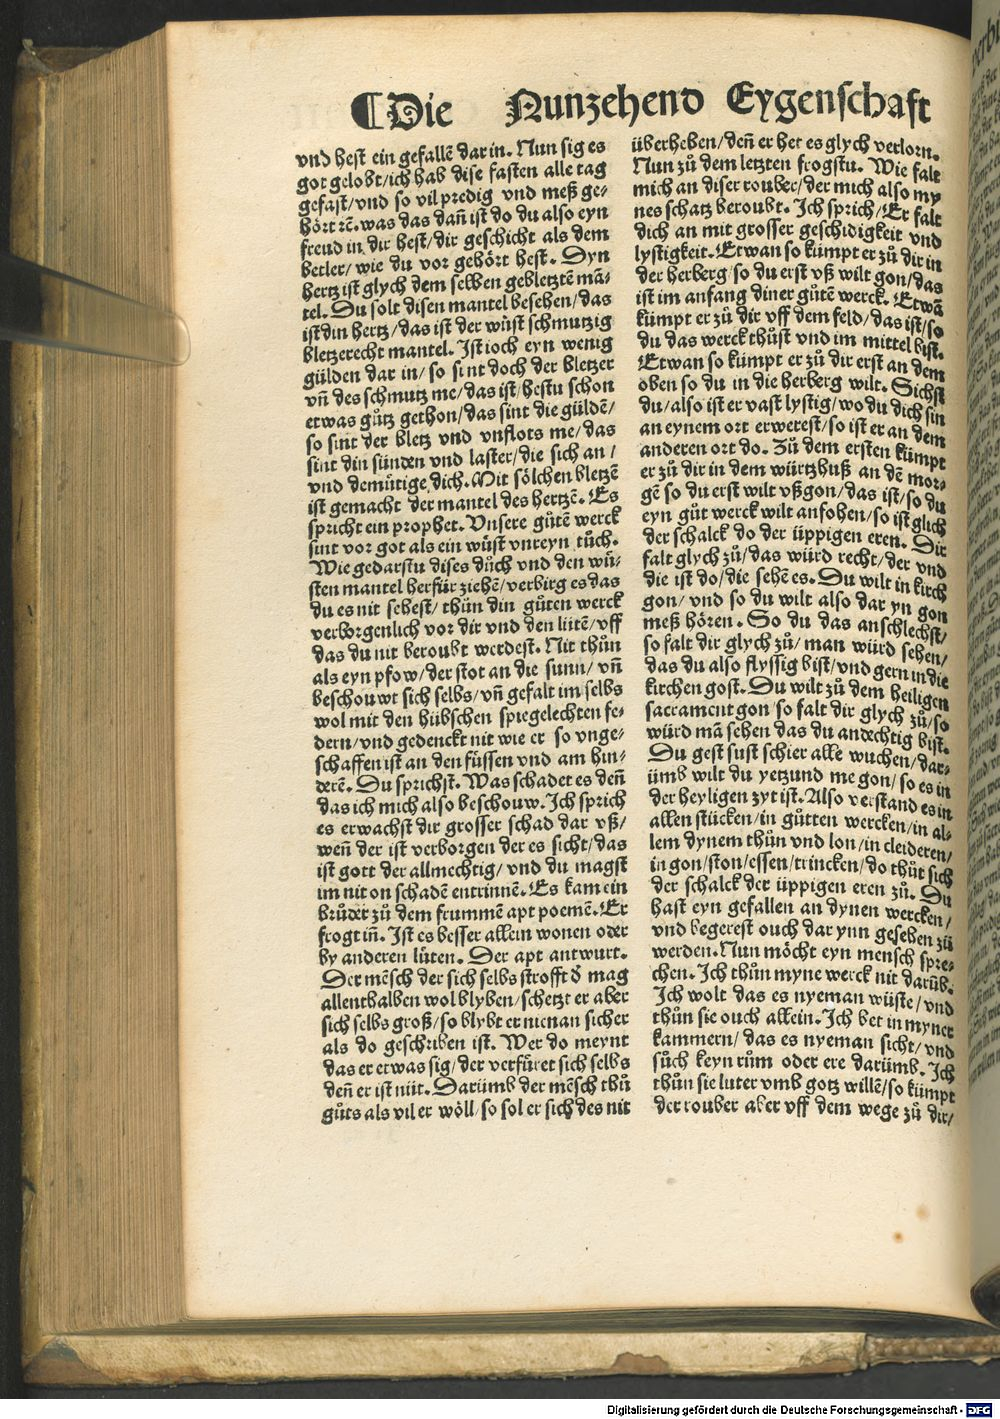 ¶Die Nunzehend Eygenschaft
vnd hest ein gefallē dar in. Nun sig es
got gelobt/ich hab dise fasten alle tag
gefast/vnd so vil predig vnd meß ge-
hört ꝛc̄. was das dañ ist do du also eyn
freud in dir hest/dir geschicht als dem
betler/wie du vor gehört hest. Dyn
hertz ist glych dem selben gebletztē mā-
tel. Du solt disen mantel besehen/das
ist din hertz/das ist der wüst schmutzig
bletzerecht mantel. Ist ioch eyn wenig
gülden dar in/so sint doch der bletzer
vñ des schmutz me/das ist/hestu schon
etwas gůtz gethon/das sint die güldē/
so sint der bletz vnd vnflots me/das
sint din sünden vnd laster/die sich an/
vnd demütige dich. Mit sölchen bletzē
ist gemacht der mantel des hertzē. Es
spricht ein prophet. Vnsere gůtē werck
sint vor got als ein wüst vnreyn tůch.
Wie gedarstu dises důch vnd den wü-
sten mantel herfür ziehē/verbirg es das
du es nit sehest/thůn din gůten werck
verborgenlich vor dir vnd den lütē/vff
das du nit beroubt werdest. Nit thůn
als eyn pfow/der stot an die sunn/vñ
beschouwt sich selbs/vñ gefalt im selbs
wol mit den hübschen spiegelechten fe-
dern/vnd gedenckt nit wie er so vnge-
schaffen ist an den füssen vnd am hin-
derē. Du sprichst. Was schadet es deñ
das ich mich also beschouw. Ich sprich
es erwachst dir grosser schad dar vß/
weñ der ist verborgen der es sicht/das
ist gott der allmechtig/vnd du magst
im nit on schadē entrinnē. Es kam ein
brůder zů dem frummē apt poemē. Er
frogt iñ. Ist es besser allein wonen oder
by anderen lüten. Der apt antwurt.
Der mēsch der sich selbs strofft d̄ mag
allenthalben wol blyben/schetzt er aber
sich selbs groß/so blybt er nienan sicher
als do geschriben ist. Wer do meynt
das er etwas sig/der verfüret sich selbs
deñ er ist nüt. Darümb der mēsch thů
gůts als vil er wöll/so sol er sich des nit
überheben/deñ er het es glych verlorn.
Nun zů dem letzten frogstu. Wie falt
mich an diser rouber/der mich also my
nes schatz beroubt. Ich sprich/Er falt
dich an mit grosser geschidigkeit vnd
lystigkeit. Etwan so kümpt er zů dir in
der herberg/so du erst vß wilt gon/das
ist im anfang diner gůtē werck. Etwā
kümpt er zů dir vff dem feld/das ist/so
du das werck thůst vnd im mittel bist.
Etwan so kümpt er zů dir erst an dem
oben so du in die herberg wilt. Sichst
du/also ist er vast lystig/wo du dich sin
an eynem ort erwerest/so ist er an dem
anderen ort do. Zů dem ersten kümpt
er zů dir in dem würtzhuß an dē mor-
gē so du erst wilt vßgon/das ist/so du
eyn gůt werck wilt anfohen/so ist glich
der schalck do der üppigen eren. Dir
falt glych zů/das würd recht/der vnd
die ist do/die sehē es. Du wilt in kirch
gon/vnd so du wilt also dar yn gon
meß hören. So du das anschlechst/
so falt dir glych zů/man würd sehen/
das du also flyssig bist/vnd gern in die
kirchen gost. Du wilt zů dem heiligen
sacrament gon/so falt dir glych zů/so
würd mā sehen das du andechtig bist.
Du gest sust schier alle wuchen/dar-
ümb wilt du yetzund me gon/so es in
der heyligen zyt ist. Also verstand es in
allen stücken/in gůtten wercken/in al-
lem dynem thůn vnd lon/in cleideren/
in gon/ston/essen/trincken/do thůt sich
der schalck der üppigen eren zů. Du
hast eyn gefallen an dynen wercken/
vnd begerest ouch dar ynn gesehen zů
werden. Nun möcht eyn mensch spre-
chen. Ich thůn myne werck nit darüb.
Ich wolt das es nyeman wüste/vnd
thůn sie ouch allein. Ich bet in myner
kammern/das es nyeman sicht/vnd
sůch keyn rům oder ere darümb. Ich
thůn sie luter vmb gotz willē/so kümpt
der rouber aber vff dem wege zů dir/
Digitalisierung gefördert durch die Deutsche Forschungsgemeinschaft - DFG